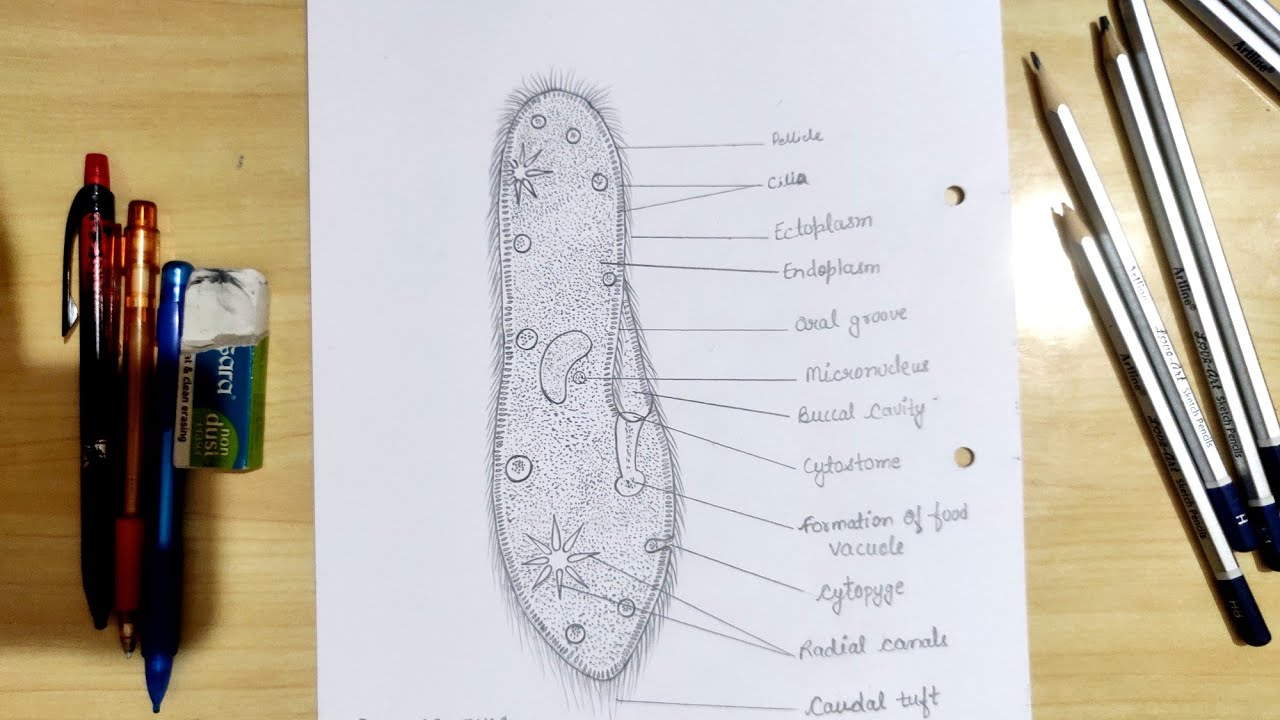 Pellicle
Cilia
Ectoplasm
Endoplasm
Oral groove
Micronucleus
Buccal cavity
Cytostome
Formation of food
vacuole
Cytopyge
Radial canals
Caudal tuft
non
dust
Artline
Love-Art Sketch Pencils
Artline
Love-Art Sketch Pencils
H
Artline
HB